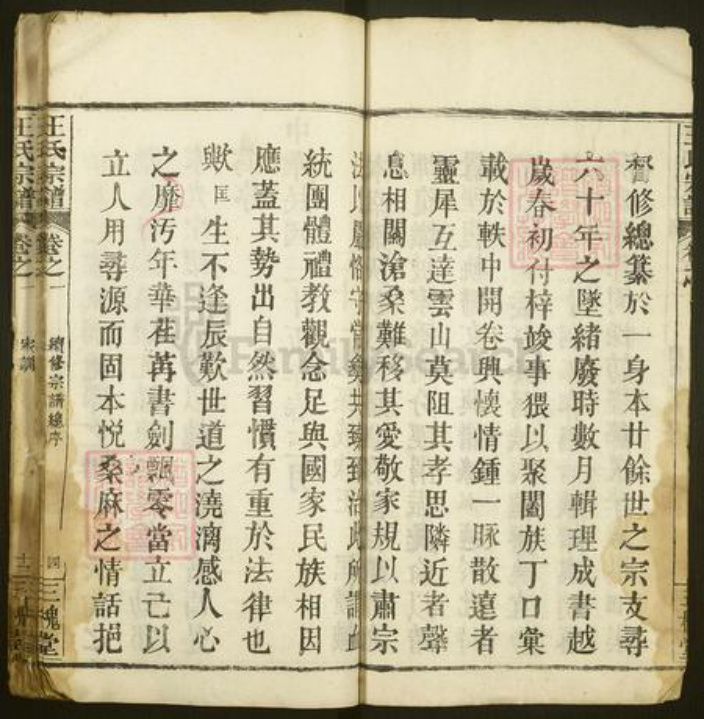 督修總纂於一身本廿餘世之宗支尋
六十年之墜緒廢時數月輯理成書越
歲春初付梓竣事猥以聚闔族丁口彙
載於軼中開卷興懷情鍾一脉散遠者
靈犀互達雲山莫阻其孝思隣近者聲
息相關滄桑難移其愛敬家規以肅宗
統團體禮教觀念足與國家民族相因
應蓋其勢出自然習慣有重於法律也
歟匡生不逢辰歎世道之澆漓感人心
之靡汚年華荏苒書劍飄零當立己以
立人用尋源而固本悅桑麻之情話挹
王氏宗譜 卷之一 續修宗譜總序 四 三槐堂
王氏宗譜 卷之一 家訓 十二
FamilySearch